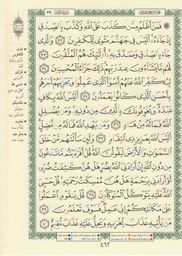 فَمَنْ أَظْلَمُ مِمَّن كَذَبَ عَلَى اللَّهِ وَكَذَّبَ بِالصِّدْقِ إِذْ
جَاءَهُ أَلَيْسَ فِي جَهَنَّمَ مَثْوًى لِّلْكَافِرِينَ ٣٢ وَالَّذِي
جَاءَ بِالصِّدْقِ وَصَدَّقَ بِهِ أُولَٰئِكَ هُمُ الْمُتَّقُونَ ٣٣
لَهُم مَّا يَشَاءُونَ عِندَ رَبِّهِمْ ذَٰلِكَ جَزَاءُ الْمُحْسِنِينَ ٣٤
لِيُكَفِّرَ اللَّهُ عَنْهُمْ أَسْوَأَ الَّذِي عَمِلُوا وَيَجْزِيَهُمْ أَجْرَهُم
بِأَحْسَنِ الَّذِي كَانُوا يَعْمَلُونَ ٣٥ أَلَيْسَ اللَّهُ بِكَافٍ
عَبْدَهُ وَيُخَوِّفُونَكَ بِالَّذِينَ مِن دُونِهِ وَمَن يُضْلِلِ اللَّهُ
فَمَا لَهُ مِنْ هَادٍ ٣٦ وَمَن يَهْدِ اللَّهُ فَمَا لَهُ مِن مُّضِلٍّ
أَلَيْسَ اللَّهُ بِعَزِيزٍ ذِي انتِقَامٍ ٣٧ وَلَئِن سَأَلْتَهُم مَّنْ خَلَقَ
السَّمَاوَاتِ وَالْأَرْضَ لَيَقُولُنَّ اللَّهُ قُلْ أَفَرَأَيْتُم مَّا تَدْعُونَ
مِن دُونِ اللَّهِ إِنْ أَرَادَنِيَ اللَّهُ بِضُرٍّ هَلْ هُنَّ كَاشِفَاتُ ضُرِّهِ
أَوْ أَرَادَنِي بِرَحْمَةٍ هَلْ هُنَّ مُمْسِكَاتُ رَحْمَتِهِ قُلْ حَسْبِيَ
اللَّهُ عَلَيْهِ يَتَوَكَّلُ الْمُتَوَكِّلُونَ ٣٨ قُلْ يَا قَوْمِ اعْمَلُوا
عَلَىٰ مَكَانَتِكُمْ إِنِّي عَامِلٌ فَسَوْفَ تَعْلَمُونَ ٣٩
مَن يَأْتِيهِ عَذَابٌ يُخْزِيهِ وَيَحِلُّ عَلَيْهِ عَذَابٌ مُّقِيمٌ ٤٠
٤٦٢